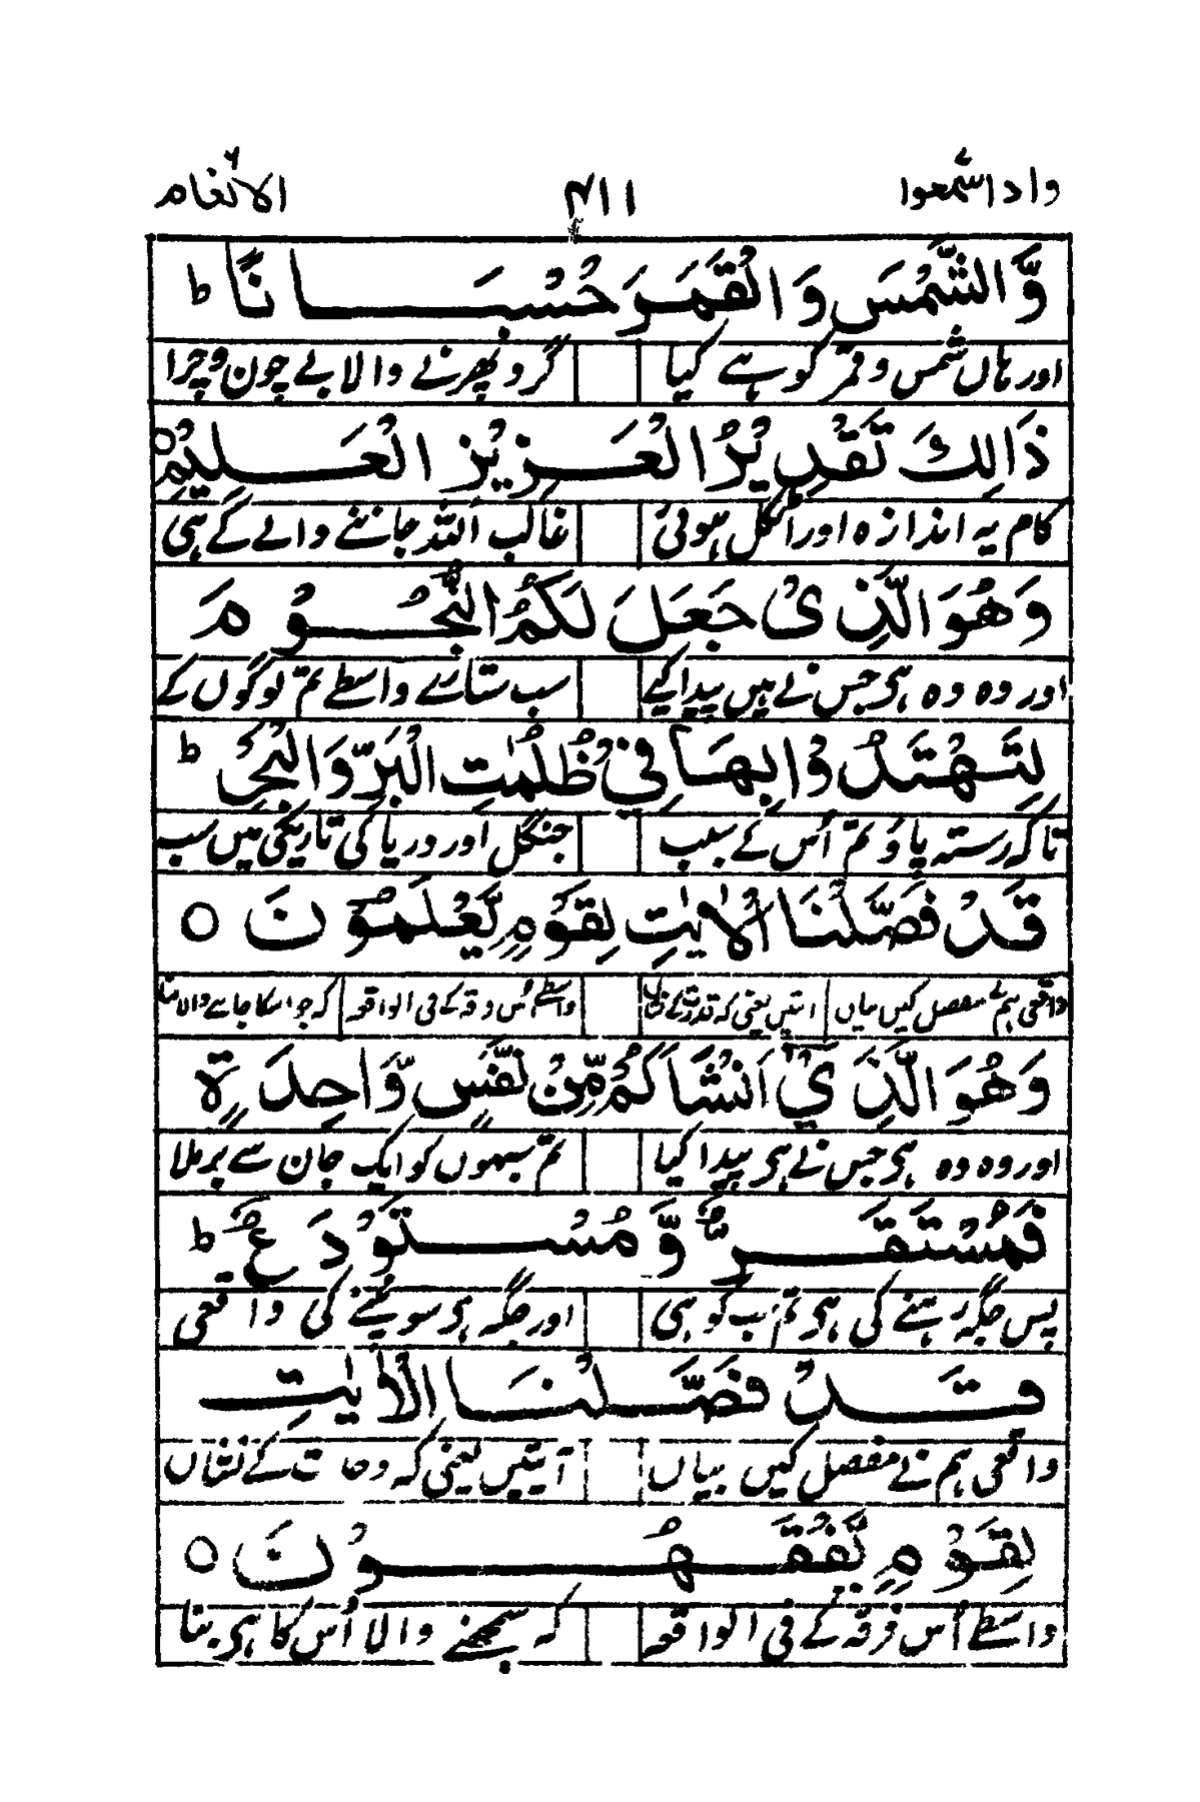 واذاسمعوا ٧ ٤١١ الانعام ٦
وَّالشَّمْسَ وَالْقَمَرَ حُسْبَانًا ط
اور ہاں شمس و قمر کو ہے کیا گرد پھرنے والا بے چون و چرا
ذَالِكَ تَقْدِيْرُ الْعَزِيْزِ الْعَلِيْمِ ○
کام یہ اندازہ اور اٹکل ہوئی غالب اللہ جاننے والے کے ہی
وَهُوَ الَّذِىْ جَعَلَ لَكُمُ النُّجُوْمَ
اور وہ وہ ہی جس نے ہیں پیدا کیے سب ستارے واسطے تم لوگوں کے
لِتَهْتَدُوْا بِهَا فِىْ ظُلُمٰتِ الْبَرِّ وَالْبَحْرِ ط
تا کہ رستہ پاؤ تم اُس کے سبب جنگل اور دریا کی تاریکی میں سب
قَدْ فَصَّلْنَا الْاٰيٰتِ لِقَوْمٍ يَّعْلَمُوْنَ ○
واقعی ہم نے مفصل کیں بیاں آیتیں یعنی کہ قدرت کے نشاں واسطے اُس فرقہ کے فی الواقعہ کہ جو
وَهُوَ الَّذِيْ اَنْشَاَكُمْ مِّنْ نَّفْسٍ وَّاحِدَةٍ
اور وہ وہ ہی جس نے ہی پیدا کیا تم سبھوں کو ایک جان سے برملا
فَمُسْتَقَرٌّ وَّ مُسْتَوْدَعٌ ط
پس جگہ رہنے کی ہی تم سب کو ہی اور جگہ ہی سونپنے کی واقعی
قَدْ فَصَّلْنَا الْاٰيٰتِ
واقعی ہم نے مفصل کیں بیاں آیتیں یعنی کہ وحدت کے نشاں
لِقَوْمٍ يَّفْقَهُوْنَ ○
واسطے اُس فرقہ کے فی الواقعہ کہ سمجھنے والا اُس کا ہی بنا